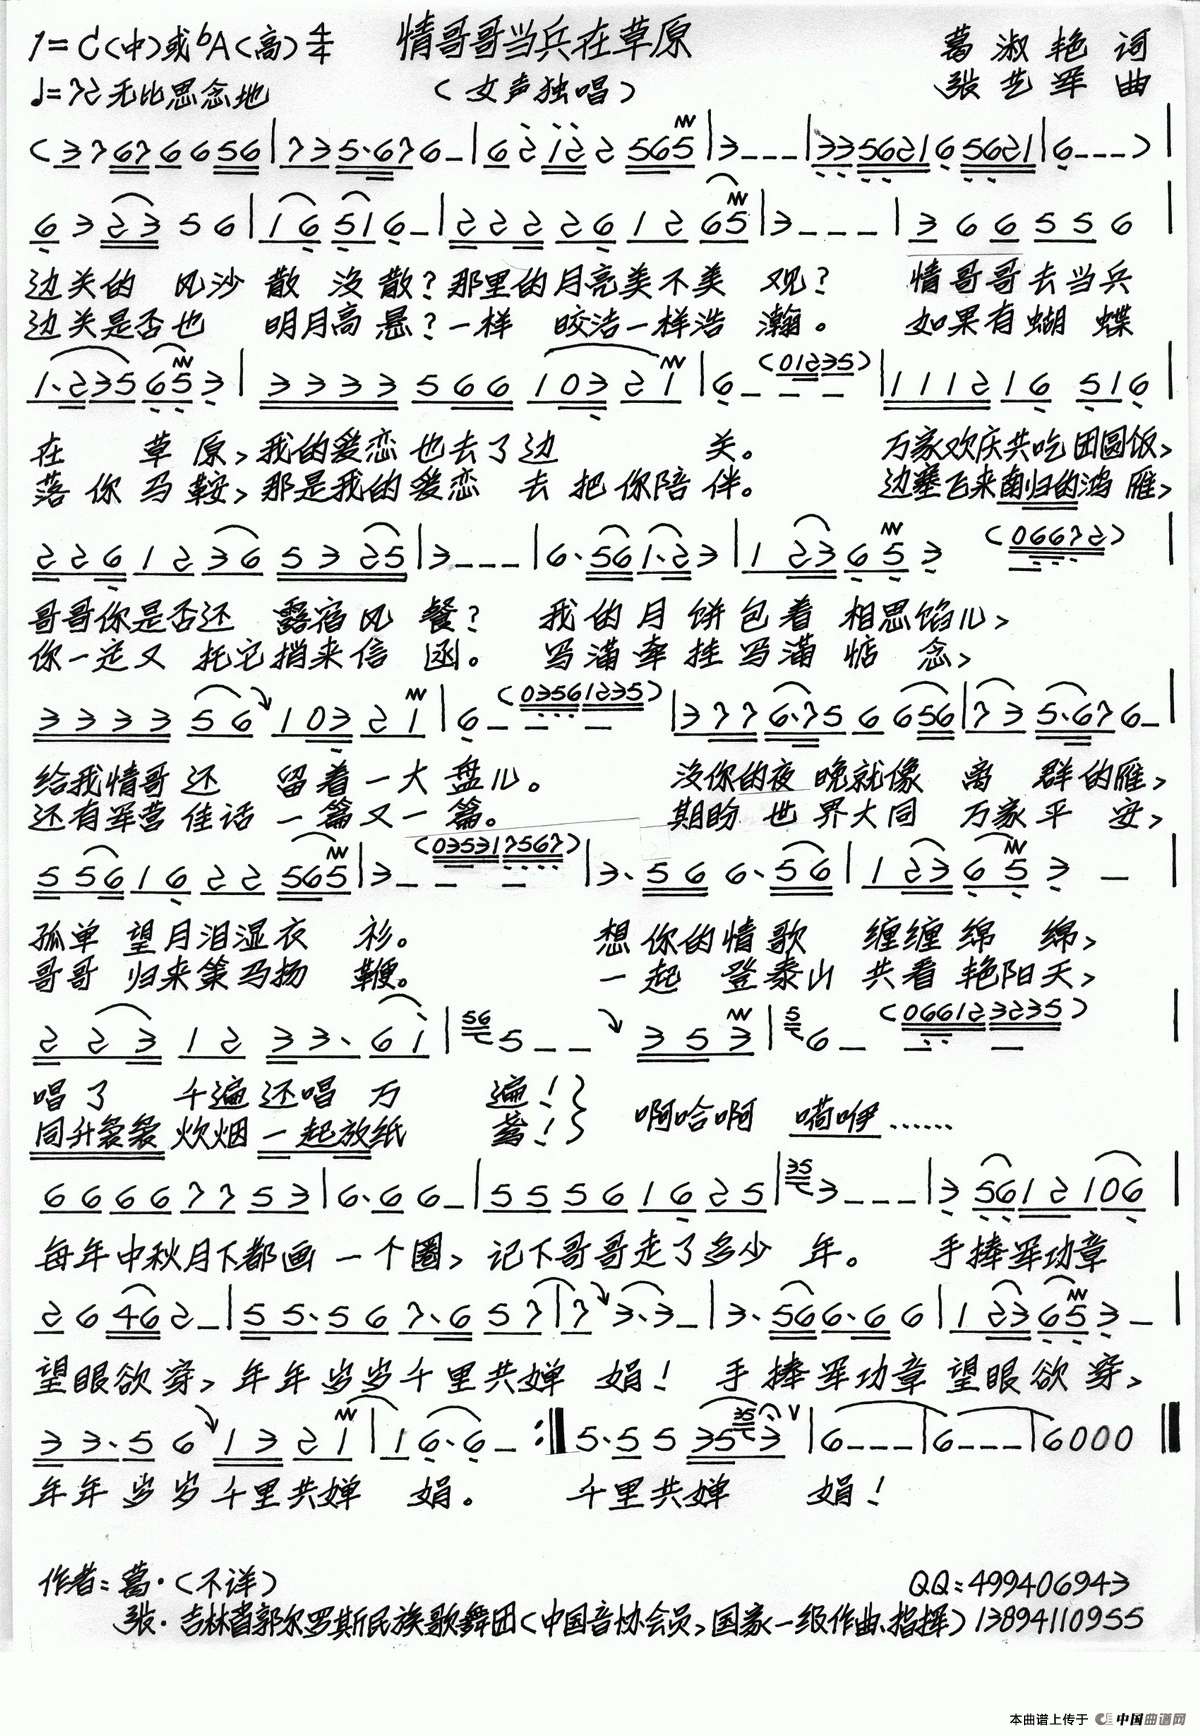 1=C(中)或bA(高)4/4 情哥哥当兵在草原 葛淑艳 词
♩=72 无比思念地 (女声独唱) 张艺军 曲
(3 7 6 7 6 6 5 6 | 7 3 5·6 7 6 – | 6 2 1 2 2 5 6 5 | 3 – – – | 3 3 5 6 2 1 6 5 6 2 1 | 6 – – –) |
6 3 2 3 5 6 | 1 6 5 1 6 – | 2 2 2 2 2 6 1 2 6 5 | 3 – – – | 3 6 6 5 5 5 6 |
边关的 风沙 散 没散?那里的月亮美不美 观? 情哥哥去当兵
边关是否也 明月高悬?一样 皎洁一样浩 瀚。 如果有蝴 蝶
1·2 3 5 6 5 3 | 3 3 3 3 5 6 6 1 0 3 2 1 | 6 – – – (0 1 2 3 5) | 1 1 1 2 1 6 5 1 6 |
在 草 原,我的爱恋也去了边 关。 万家欢庆共吃团圆饭,
落你马鞍,那是我的爱恋 去把你陪伴。 边塞飞来南归的鸿雁,
2 2 6 1 2 3 6 5 3 2 5 | 3 – – – | 6·5 6 1·2 3 | 1 2 3 6 5 3 (0 6 6 7 2) |
哥哥你是否还 露宿风 餐? 我的月饼包着 相思馅儿,
你一定又 托它捎来信 函。 写满牵挂写满 惦 念,
3 3 3 3 5 6 1 0 3 2 1 | 6 – – – (0 3 5 6 1 2 3 5) | 3 7 7 6·7 5 6 6 5 6 | 7 3 5·6 7 6 – |
给我情哥还 留着一大盘儿。 没你的夜晚就像 离 群的雁,
还有军营佳话 一篇又一篇。 期盼世界大同 万家平 安,
5 5 6 1 6 2 2 5 6 5 | 3 – – – (0 3 5 3 1 7 5 6 7) | 3·5 6 6·5 6 | 1 2 3 6 5 3 – |
孤单 望月泪湿衣 衫。 想你的情歌 缠缠绵 绵,
哥哥 归来策马扬 鞭。 一起 登泰山 共看艳阳天,
2 2 3 1 2 3 3·6 1 | 56 5 – – 3 5 3 | 5 6 – – – (0 6 6 1 2 3 2 3 5) |
唱了 千遍还唱万 遍!} 啊哈啊 嗬咿……
同升袅袅炊烟一起放纸 鸢!}
6 6 6 6 7 7 5 3 | 6·6 6 – | 5 5 5 6 1 6 2 5 | 35 3 – – – | 3 5 6 1 2 1 0 6 |
每年中秋月下都画 一个圈,记下哥哥走了多少 年。 手捧军功章
2 6 4 6 2 – | 5 5·5 6 7·6 5 7 | 7 3·3 – | 3·5 6 6·6 6 | 1 2 3 6 5 3 – |
望眼欲穿,年年岁岁千里共婵 娟! 手捧军功章望眼欲穿,
3 3·5 6 1 3 2 1 | 1 6·6 – :‖ 5·5 5 3 5 35 3 ∨ | 6 – – – | 6 – – – | 6 0 0 0 ‖
年年岁岁千里共婵 娟。 千里共婵 娟!
作者:葛·(不详) QQ:499406943
张·吉林省郭尔罗斯民族歌舞团(中国音协会员,国家一级作曲、指挥)13894110955
本曲谱上传于 中国曲谱网